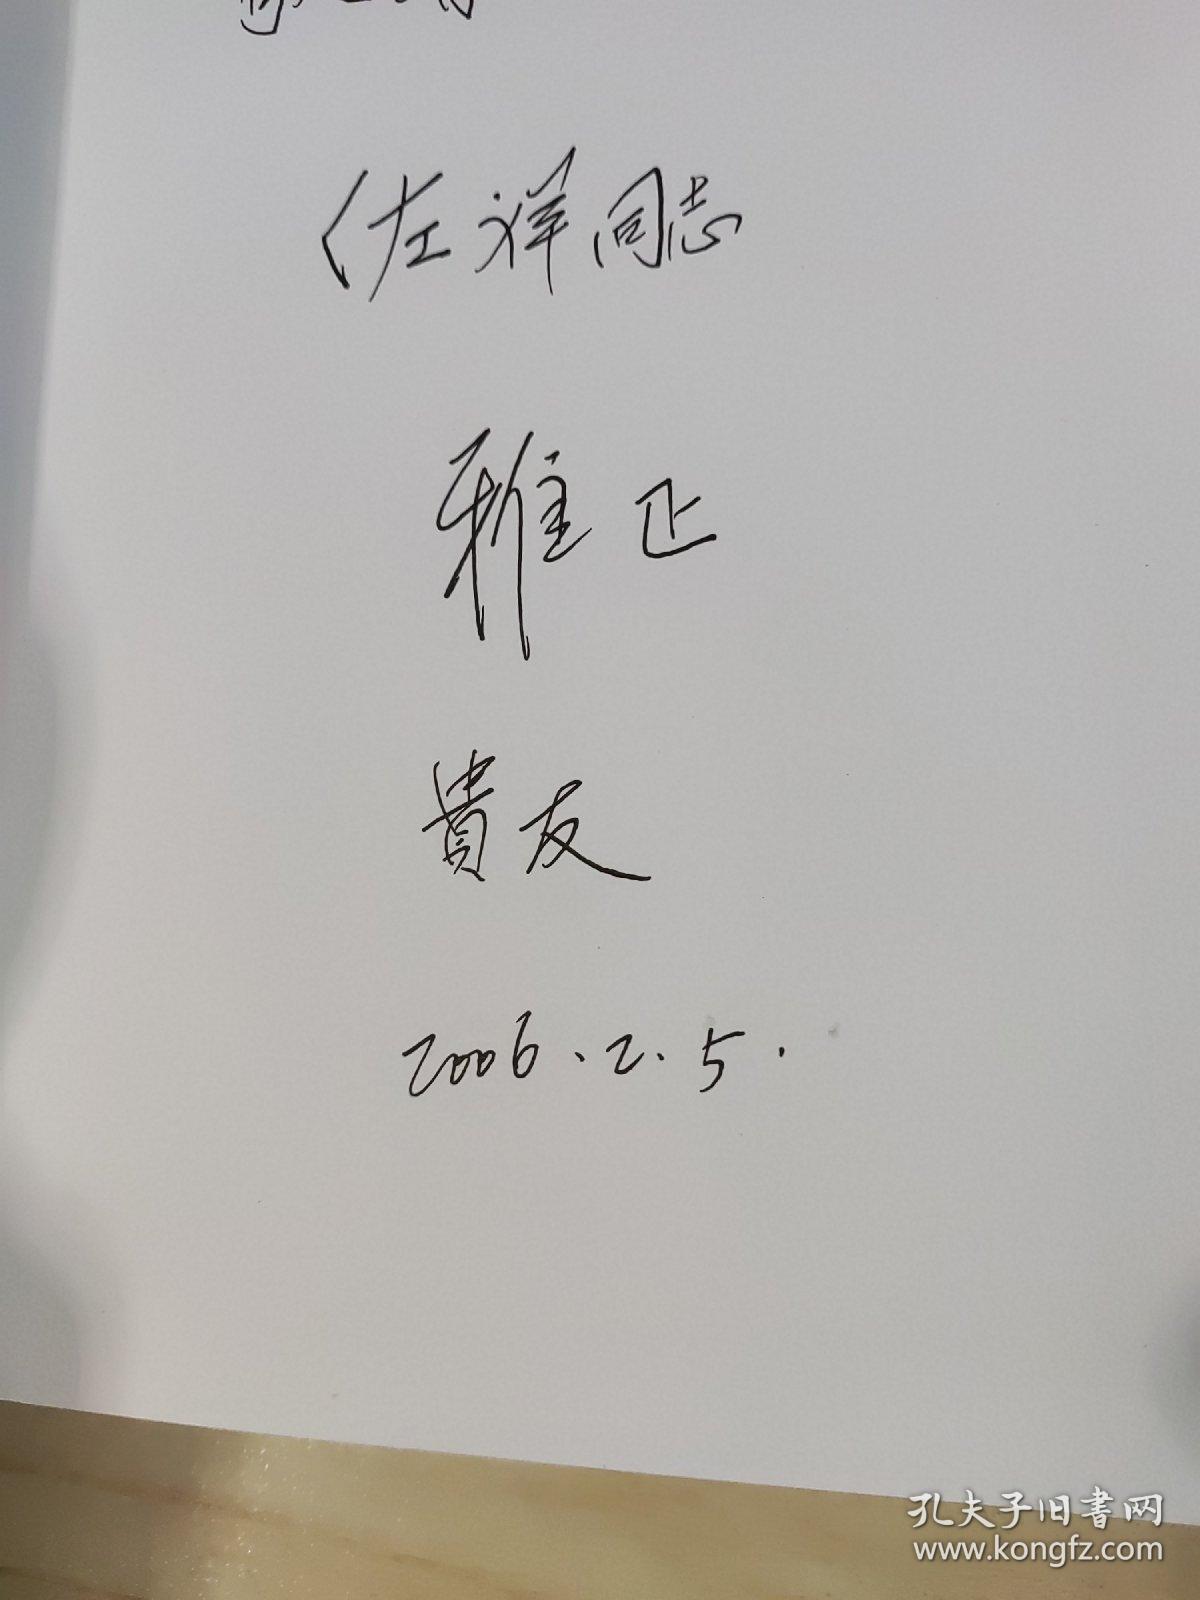 佐祥同志
雅正
貴友
2006.2.5.
孔夫子旧書网
www.kongfz.com